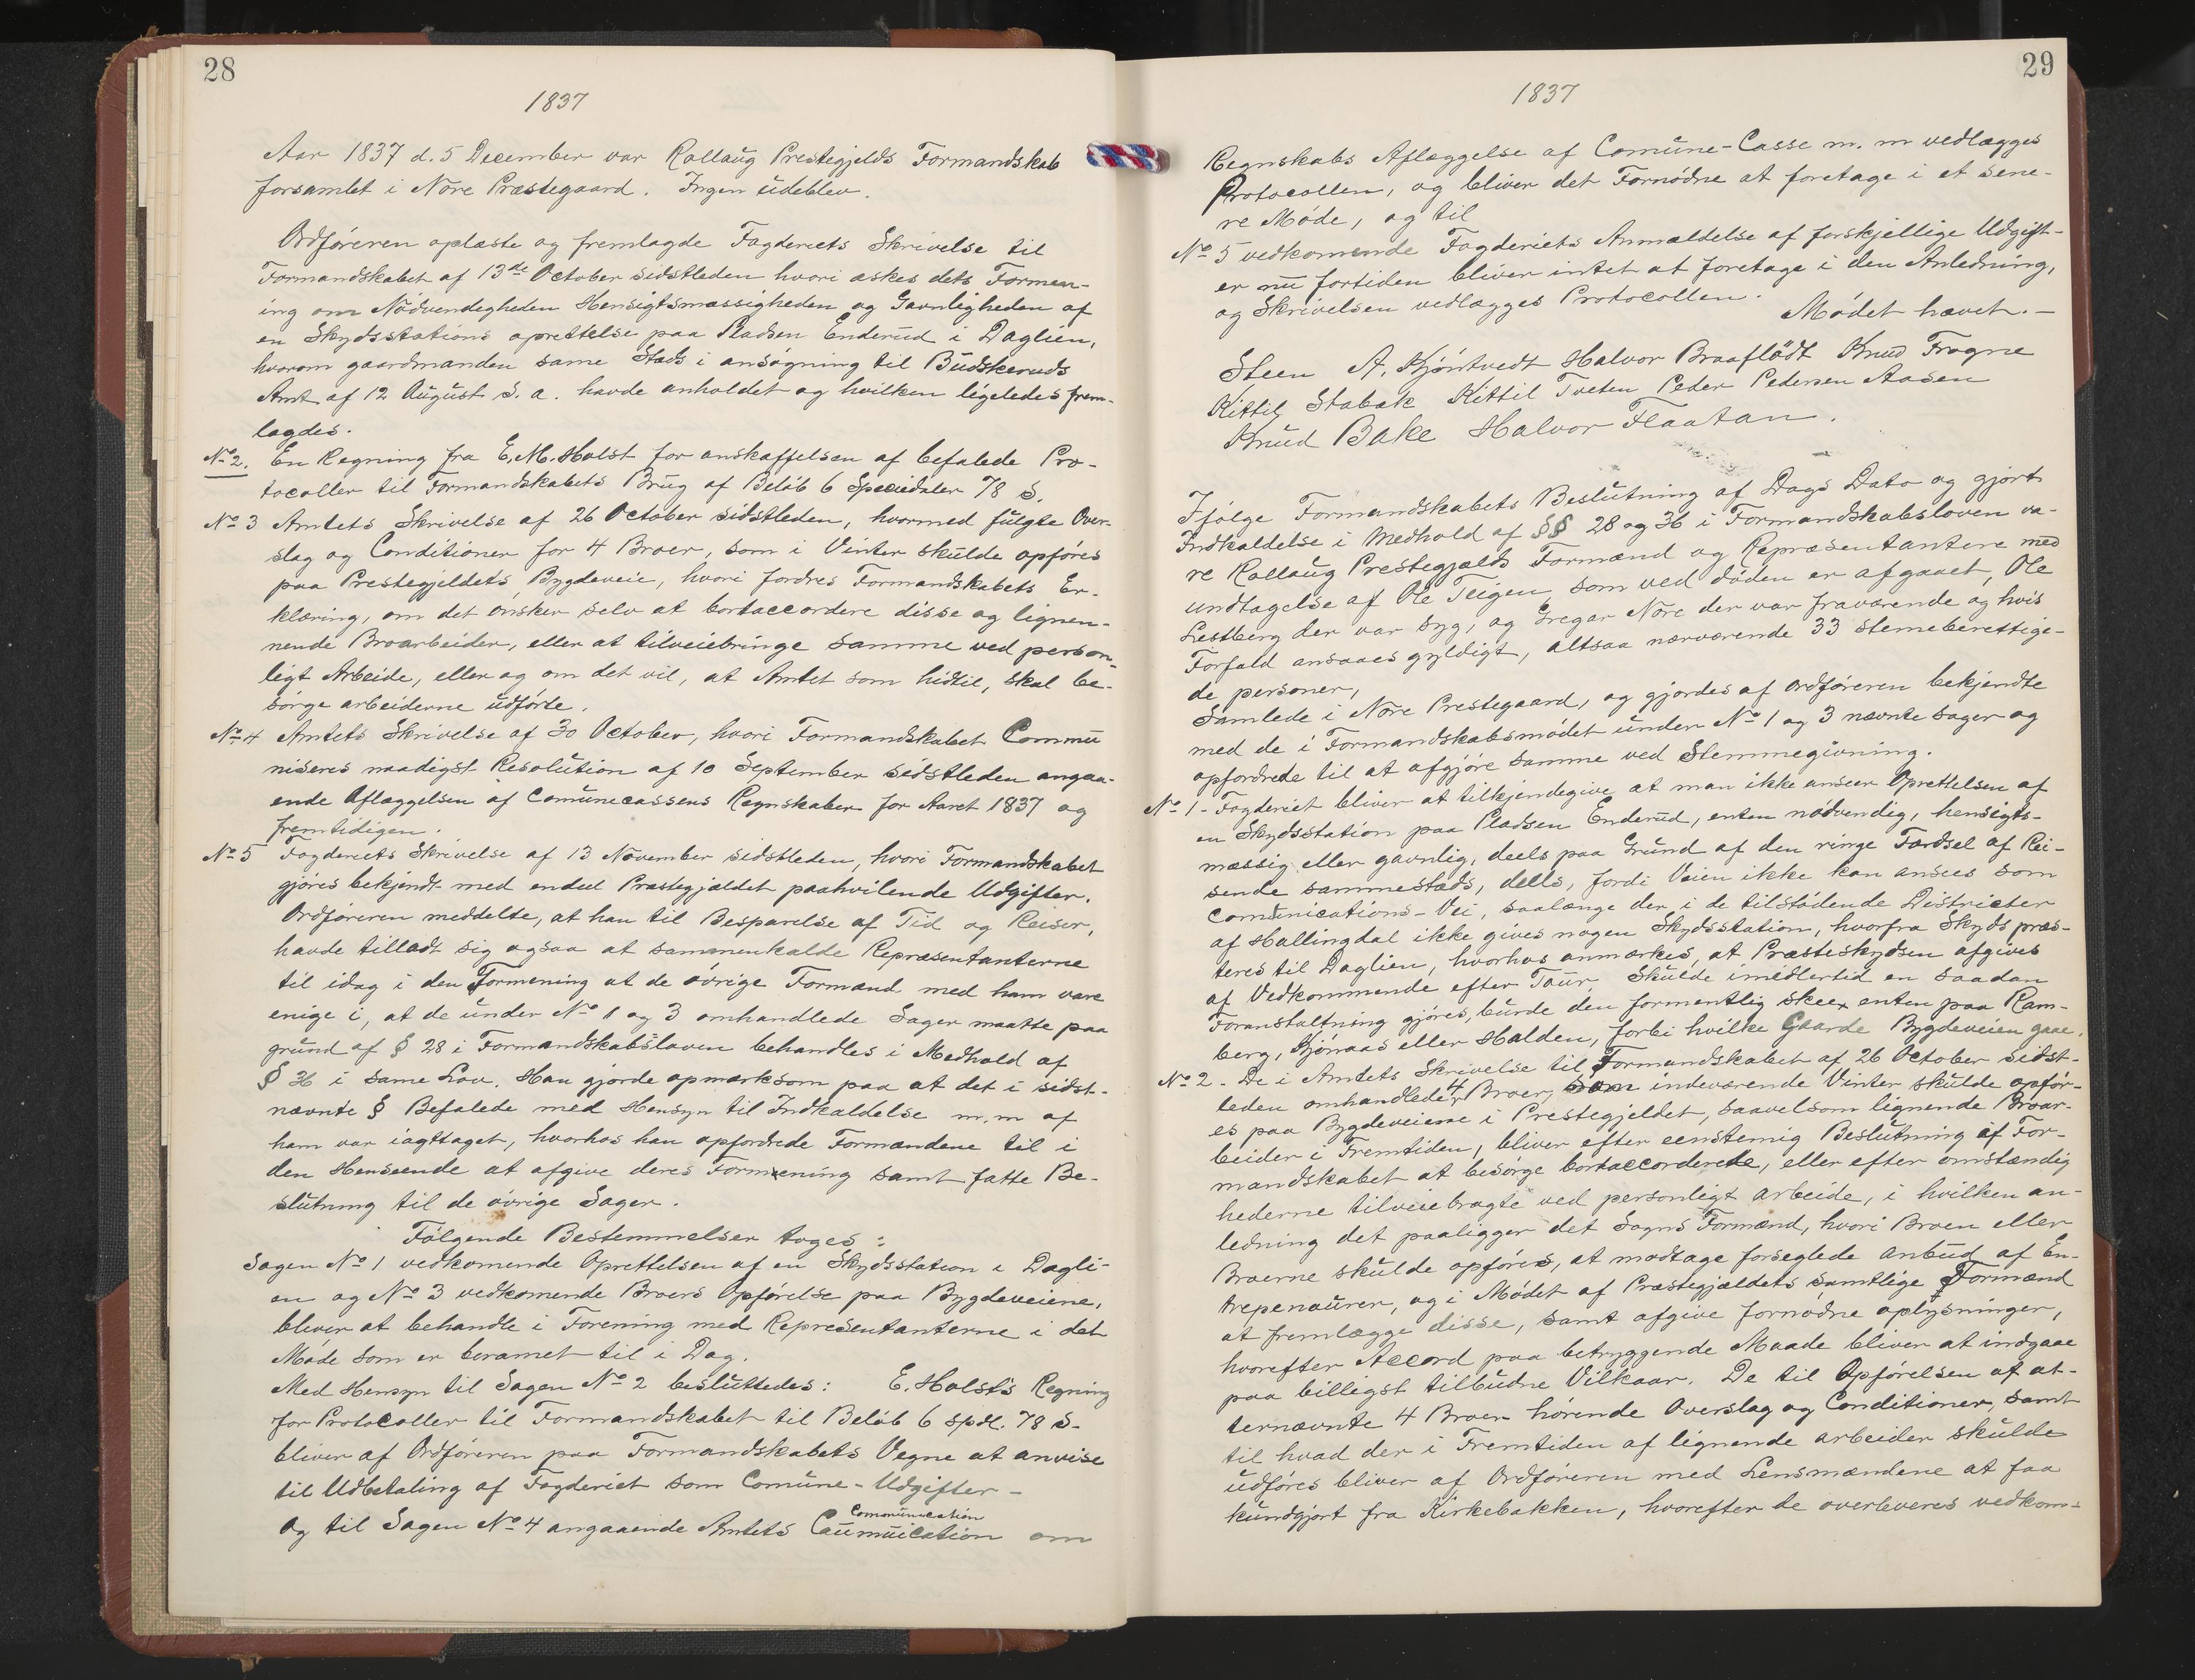 28
1837
Aar 1837 d. 5 December var Rollaug Prestegjelds Formandskab
forsamlet i Nore Præstegaard. Ingen udeblev.
Ordføreren oplæste og fremlagde Fogderiets Skrivelse til
Formandskabet af 13de October sidstleden hvori æskes dets Formen-
ing om Nødvendegheden Hensigtsmæssigheden og Gavnligheden af
en Skydsstations oprettelse paa Pladsen Enderud i Daglien,
hvorom gaardmanden same Steds i ansøgning til Budskeruds
Amt af 12 August s. a. havde anholdet og hvilken ligeledes frem-
lagdes.
No 2. En Regning fra E. M. Holst for anskaffelsen af befalede Pro-
tocoller til Formandskabets Brug af Beløb 6 Speciedaler 78 s.
No 3 Amtets Skrivelse af 26 October sidstleden, hvormed fulgte Over-
slag og Conditioner for 4 Broer, som i Vinter skulde opføres
paa Prestegjeldets Bygdeveie, hvori fordres Formandskabets Er-
klæring, om det ønsker selv at bortaccordere disse og lignen-
nende Broarbeider, eller at tilveiebringe samme ved person-
ligt Arbeide, eller og om det vil, at Amtet som hidtil, skal be-
sørge arbeiderne udførte.
No 4 Amtets Skrivelse af 30 October, hvori Formandskabet Commu
niseres naadigst Resolution af 10 September sidstleden angaa-
ende Aflæggelsen af Comunecassens Regnskaber for Aaret 1837 og
fremtidigen.
No 5 Fogderiets Skrivelse af 13 November sidstleden, hvori Formandskabet
gjøres bekjendt med endeel Præstegjældet paahvilende Udgifter.
Ordføreren meddelte, at han til Besparelse af Tid og Reiser,
havde tilladt sig ogsaa at sammenkalde Repræsentanterne
til idag i den Formening at de øvrige Formænd med ham vare
enige i, at de under No 1 og 3 omhandlede Sager maatte paa
grund af § 28 i Formandskabsloven behandles i Medhold af
§ 36 i same Lov. Han gjorde opmærksom paa at det i sidst-
nævnte § Befalede med Hensyn til Indkaldelse m. m af
ham var iagttaget, hvorhos han opfordrede Formændene til i
den Henseende at afgive deres Formening samt fatte Be-
slutning til de øvrige Sager.
Følgende Bestemmelser toges:
Sagen No 1 vedkomende Oprettelsen af en Skydsstation i Dagli-
en og No 3 vedkomende Broers Opførelse paa Bygdeveiene,
bliver at behandle i Forening med Representanterne i det
Møde som er beramet til i Dag.
Med Hensyn til Sagen No 2 besluttedes: E. Holst's Regning
for Protocoller til Formandskabet til Beløb 6 spdl. 78 s.
bliver af Ordføreren paa Formandskabets Vegne at anvise
til Udbetaling af Fogderiet som Comune-Udgifter -
Communication
Og til Sagen No 4 angaaende Amtets Caumuication om
29
1837
Regnskabs Aflæggelse af Comune-Casse m. m vedlægges
Protocollen, og bliver det Fornødne at foretage i et sene-
re Møde, og til
No 5 vedkomende Fogderiets Anmældelse af forskjellige Udgift-
er nu fortiden bliver intet at foretage i den Anledning,
og Skrivelsen vedlægges Protocollen. Mødet hævet. -
Steen A. Kjøntvedt Halvor Braaflødt Knud Fragne
Kittil Stabæk Kittil Tveten Peder Pedersen Aasen
Knud Bake Halvor Flaatan.
Ifølge Formandskabets Beslutning af Dags Dato og gjort
Indkaldelse i Medhold af §§ 28 og 36 i Formandskabsloven va-
re Rollaug Prestegjælds Formænd og Repræsentantere med
undtagelse af Ole Teigen som ved døden er afgaaet, Ole
Lestberg der var syg, og Gregar Nore der var fraværende og hvis
Forfald ansaaes gyldigt, altsaa nærværende 33 stemeberettige-
de personer,
Samlede i Nore Prestegaard, og gjordes af Ordføreren bekjendte
med de i Formandskabsmødet under No 1 og 3 nævnte sager og
opfordrede til at afgjøre samme ved Stemmegivning.
No 1 - Fogderiet bliver at tilkjendegive at man ikke anseer Oprettelsen af
en Skydsstation paa Pladsen Enderud, enten nødvendig, hensigts-
mæssig eller gavnlig, deels paa Grund af den ringe Færdsel af Rei-
sende sammesteds, deels, fordi Veien ikke kan ansees som
Comunications-Vei, saalænge der i de tilstødende Districter
af Hallingdal ikke gives nogen Skydsstation, hvorfra Skyds præs-
teres til Daglien, hvorhos anmærkes, at Præsteskydsen afgives
af Vedkommende efter Tour. Skulde imidlertid en saadan
Foranstaltning gjøres, burde den formentlig skee enten paa Ram-
berg, Kjønaas eller Halden, forbi hvilke Gaarde Bygdeveien gaae.
No 2 - De i Amtets Skrivelse til Formandskabet af 26 October sidst-
leden omhandlede 4 Broer, som indeværende Vinter skulde opfør-
es paa Bygdeveiene i Prestegjeldet, saavelsom lignende Broar-
beider i Fremtiden, bliver efter eenstemig Beslutning af For-
mandskabet at besørge bortaccorderede, eller efter omstændig
hederne tilveiebragte ved personligt arbeide, i hvilken an-
ledning det paaligger det Sogns Formænd, hvori Broen eller
Broerne skulde opføres, at modtage forseglede anbud af En-
trepenourer, og i Mødet af Præstegjældets samtlige Formænd
at fremlægge disse, samt afgive fornødne oplysninger,
hvorefter Accord paa betryggende Maade bliver at indgaae
paa billigst tilbudne Vilkaar. De til Opførelsen af at-
ternævnte 4 Broer hørende Overslag og Conditioner, samt
til hvad der i Fremtiden af lignende arbeider skulde
udføres bliver af Ordføreren med Lensmændene at faa
kundgjort fra Kirkebakken, hvorefter de overleveres vedkom-